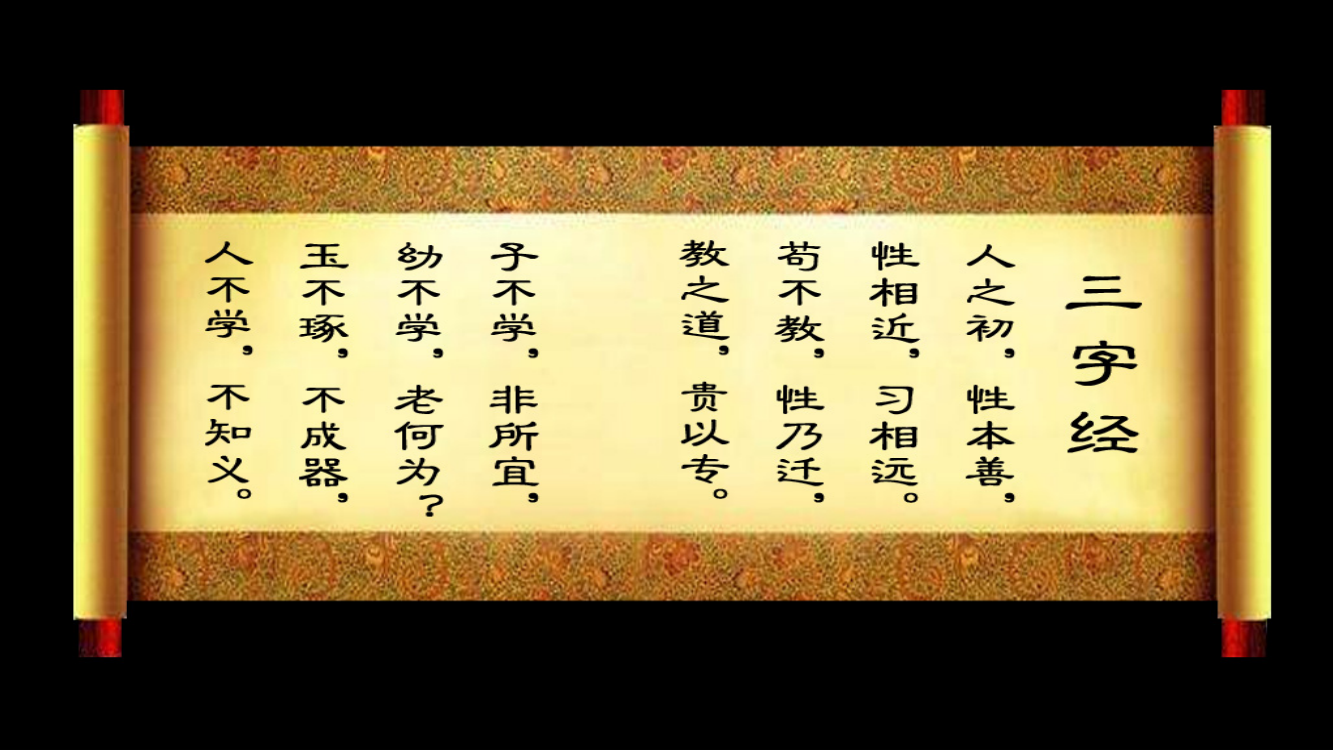 三字经
人之初，性本善，
性相近，习相远。
苟不教，性乃迁，
教之道，贵以专。
子不学，非所宜，
幼不学，老何为？
玉不琢，不成器，
人不学，不知义。